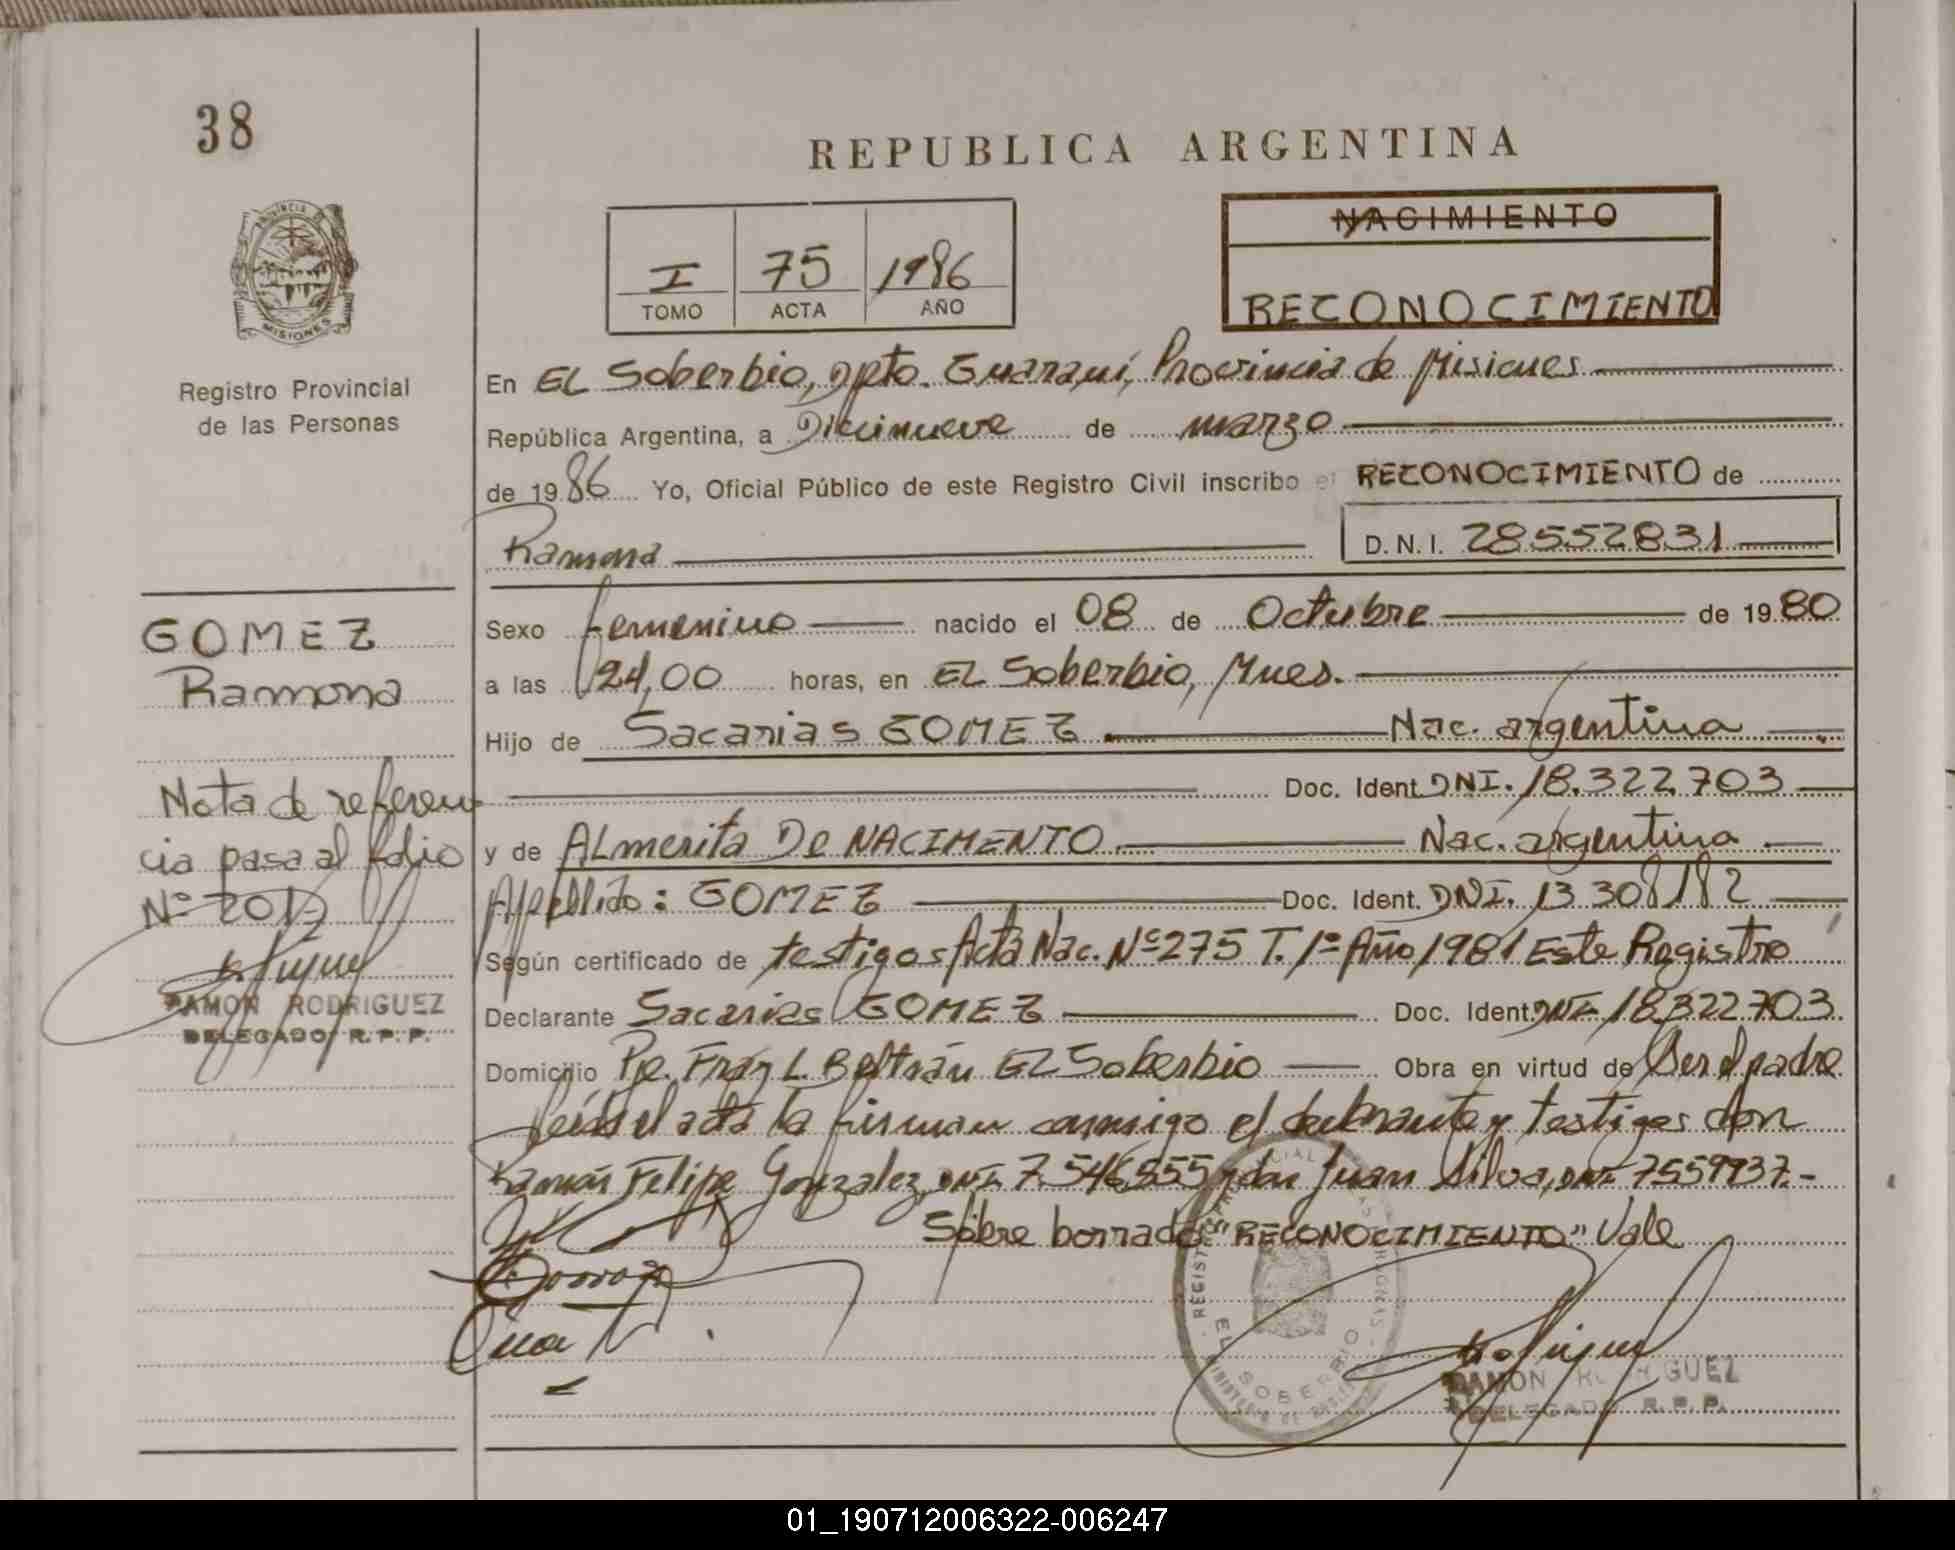 38
REPUBLICA ARGENTINA
PROVINCIA DE
MISIONES
Registro Provincial
de las Personas
I 75 1986
TOMO ACTA AÑO
NACIMIENTO
RECONOCIMIENTO
En EL Soberbio, Dpto. Guaraní, Provincia de Misiones
República Argentina, a Diecinueve de marzo
de 1986 Yo, Oficial Público de este Registro Civil inscribo el RECONOCIMIENTO de
Ramona D.N.I. 28552831
GOMEZ
Ramona
Sexo femenino nacido el 08 de Octubre de 1980
a las 24,00 horas, en EL Soberbio, Mnes.
Hijo de Sacarias GOMEZ Nac. argentina
Doc. Ident. DNI. 18.322.703
y de ALmerita De NACIMENTO Nac. argentina
Apellido: GOMEZ Doc. Ident. DNI. 13.308182
Según certificado de testigos Acta Nac. Nº 275 T. 1º Año 1981 Este Registro
Declarante Sacarias GOMEZ Doc. Ident. DNI 18.322.703.
Domicilio Pje. Fray L. Beltrán EL Soberbio Obra en virtud de Ser el padre
Leída el acta la firman conmigo el declarante y testigos don
Ramón Felipe Gonzalez, DNI 7.546.555 y don Juan Silva, DNI 7559937.-
Sobre borrado "RECONOCIMIENTO" Vale
Nota de referen
cia pasa al folio
Nº 201
RAMON RODRIGUEZ
DELEGADO R.P.P.
EL SOBERBIO
RAMON RODRIGUEZ
DELEGADO R.P.P.
01_190712006322-006247